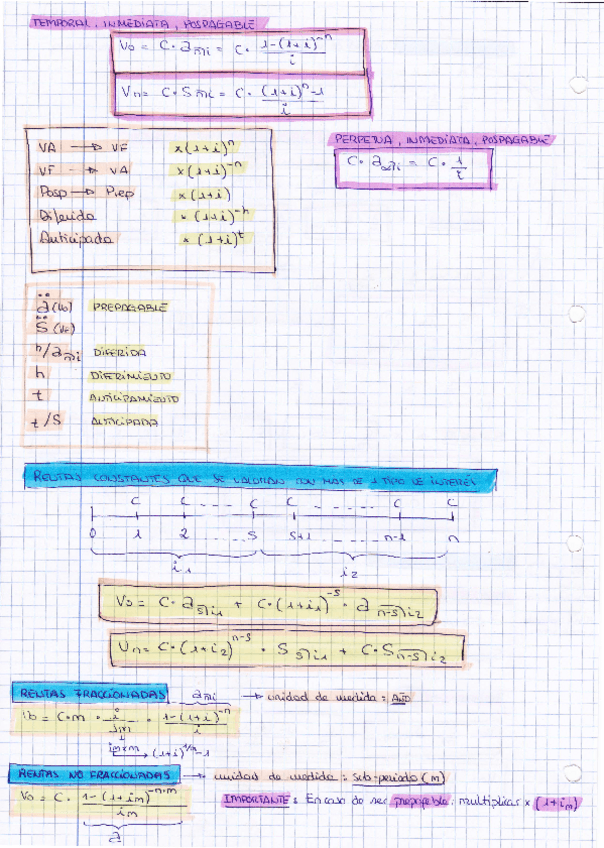 TEMPORAL, INMEDIATA, POSPAGABLE
V₀ = C · a n̅|i = C · 1-(1+i)⁻ⁿ / i
Vn = C · S n̅|i = C · (1+i)ⁿ-1 / i
PERPETUA, INMEDIATA, POSPAGABLE
C · a ∞̅|i = C · 1/i
VA → VF ×(1+i)ⁿ
VF → VA ×(1+i)⁻ⁿ
Posp → Prep ×(1+i)
Diferida ×(1+i)⁻ʰ
Anticipada ×(1+i)ᵗ
ä (V₀) PREPAGABLE
S̈ (VF)
h/a n̅|i DIFERIDA
h DIFERIMIENTO
t ANTICIPAMIENTO
t/S ANTICIPADA
RENTAS CONSTANTES QUE SE VALORAN CON MAS DE 1 TIPO DE INTERÉS
C C ---- C C ------- C C
0 1 2 ..... S S+1 ....... n-1 n
i₁ i₂
V₀ = C · a s̅|i₁ + C · (1+i₁)⁻ˢ · a n-s|i₂
Vn = C · (1+i₂)ⁿ⁻ˢ · S s̅|i₁ + C · S n-s|i₂
RENTAS FRACCIONADAS a n̅|i → unidad de medida = AÑO
V₀ = C·m · i / J(m) · 1-(1+i)⁻ⁿ / i
im×m → (1+i)^1/m -1
RENTAS NO FRACCIONADAS → unidad de medida = sub-periodo (m)
V₀ = C · 1-(1+im)⁻ⁿ·ᵐ / im
a
IMPORTANTE: En caso de ser prepagable: multiplicar × (1+im)